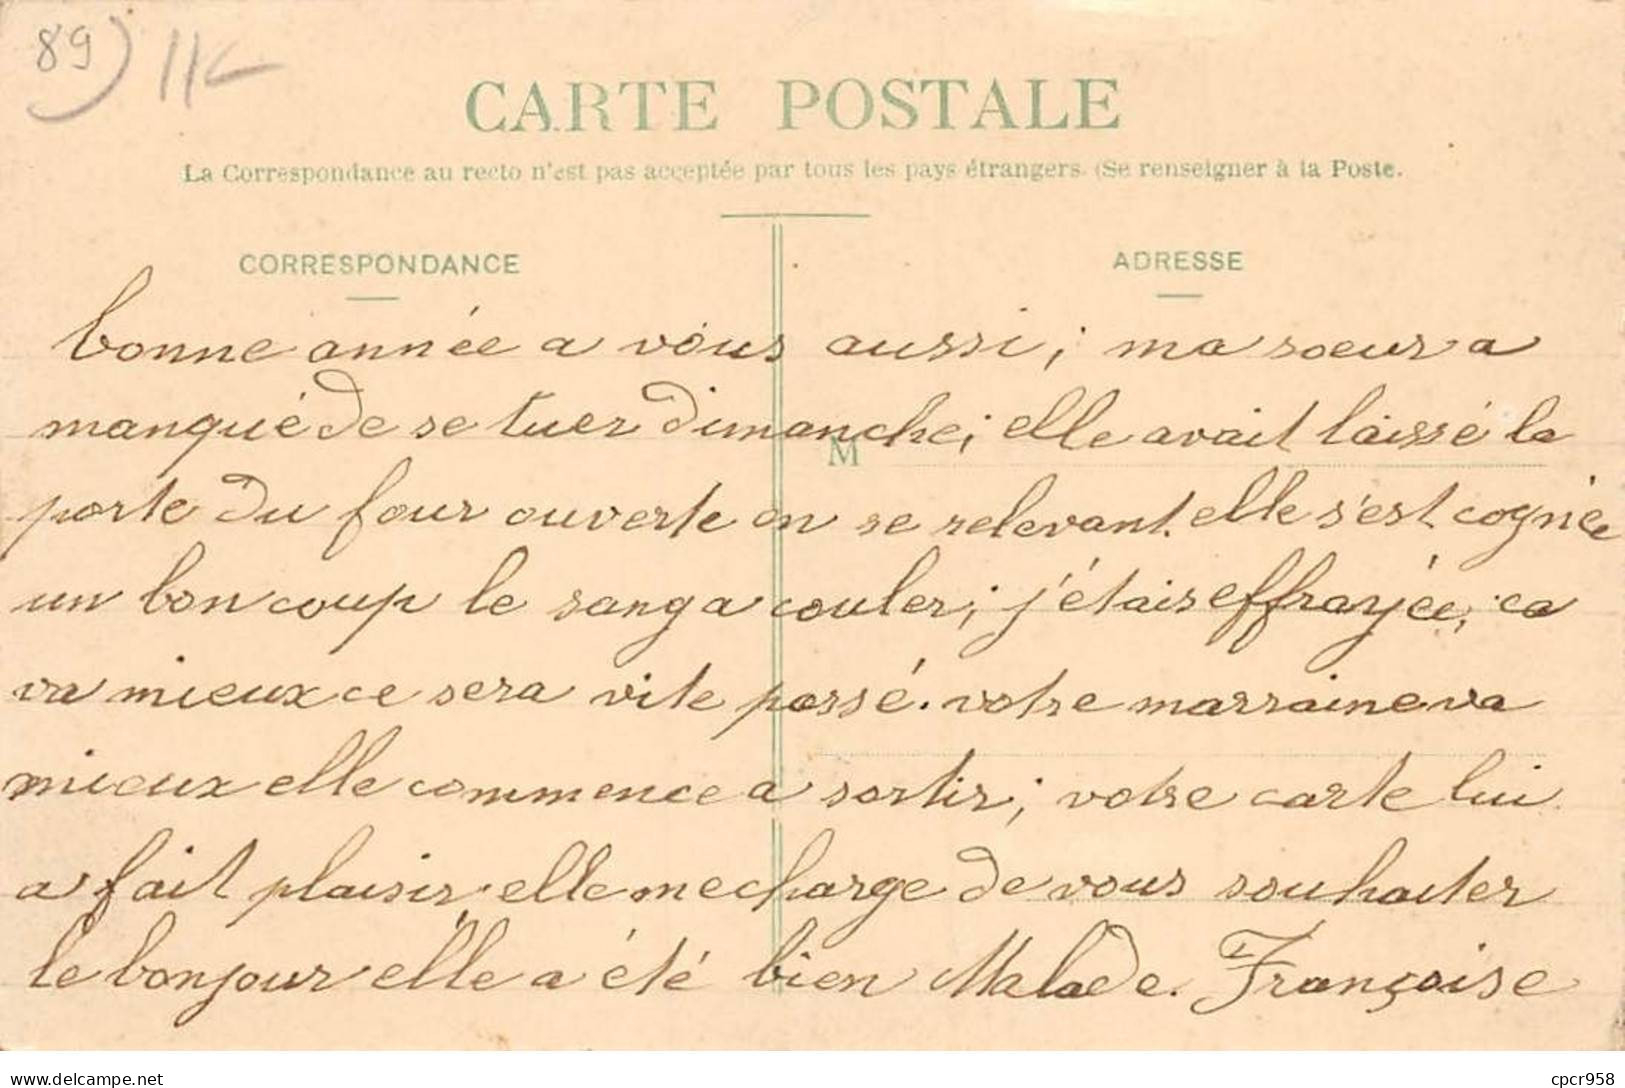 89) 11
CARTE POSTALE
La Correspondance au recto n'est pas acceptée par tous les pays étrangers. (Se renseigner à la Poste.
CORRESPONDANCE
ADRESSE
M
bonne année a vous aussi; ma soeur a
manqué de se tuer dimanche; elle avait laissé la
porte du four ouverte en se relevant elle s'est cognée
un bon coup le sang a couler; j'étais effrayée; ca
va mieux ce sera vite passé. votre marraine va
mieux elle commence a sortir; votre carte lui
a fait plaisir elle me charge de vous souhaiter
le bonjour elle a été bien Malade. Françoise
www.delcampe.net
cpcr958